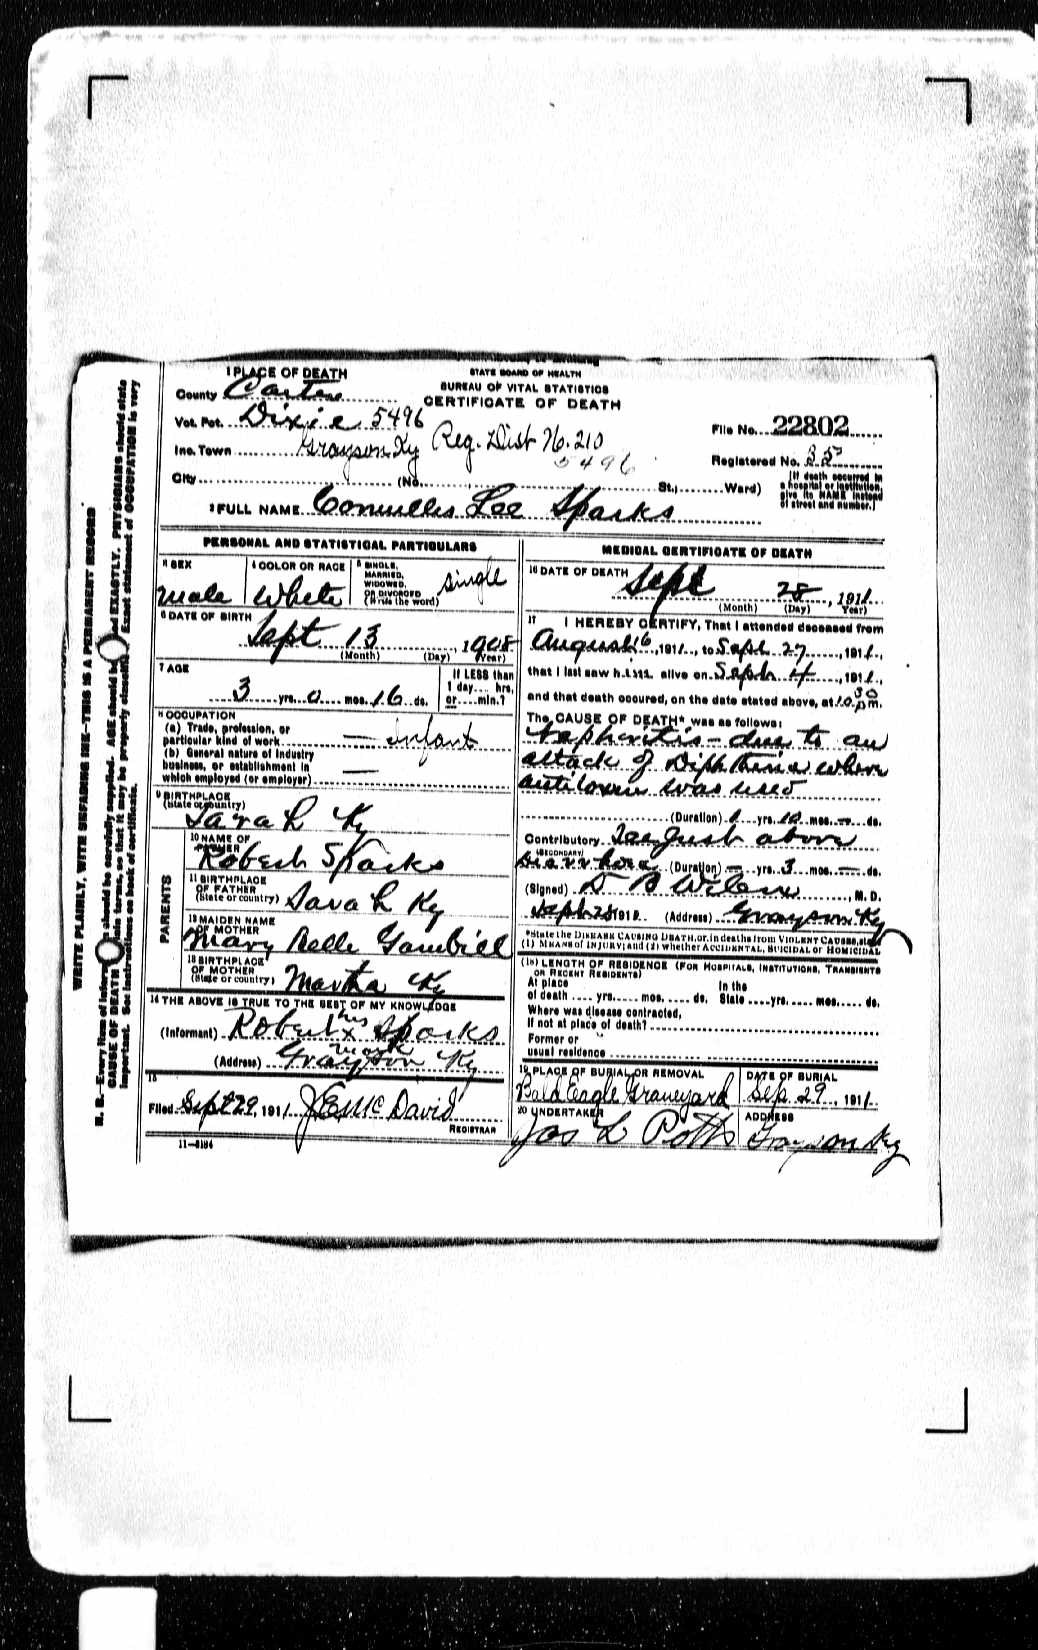 STATE BOARD OF HEALTH
BUREAU OF VITAL STATISTICS
CERTIFICATE OF DEATH
1 PLACE OF DEATH
County Carter
Vot. Pct. Dixie 5496
Inc. Town Grayson Ky Reg. Dist No. 210
5496
City (No. St., Ward)
File No. 22802
Registered No. 35
[If death occurred in a hospital or institution, give its NAME instead of street and number.]
2 FULL NAME Cornuelles Lee Sparks
PERSONAL AND STATISTICAL PARTICULARS
3 SEX
male
4 COLOR OR RACE
White
5 SINGLE, MARRIED, WIDOWED, OR DIVORCED (Write the word)
single
6 DATE OF BIRTH
Sept 13, 1908
(Month) (Day) (Year)
7 AGE
3 yrs. 0 mos. 16 ds.
If LESS than 1 day.... hrs, or....min.?
8 OCCUPATION
(a) Trade, profession, or particular kind of work — Infant
(b) General nature of industry business, or establishment in which employed (or employer) —
9 BIRTHPLACE
(State or country)
Sarah Ky
PARENTS
10 NAME OF FATHER
Robert Sparks
11 BIRTHPLACE OF FATHER
(State or country) Sarah Ky
12 MAIDEN NAME OF MOTHER
Mary Belle Gambill
13 BIRTHPLACE OF MOTHER
(State or country) Martha Ky
14 THE ABOVE IS TRUE TO THE BEST OF MY KNOWLEDGE
(Informant) Robert his x mark Sparks
(Address) Grayson Ky
15
Filed Sept 29, 1911 J E McDavid
REGISTRAR
11-3184
MEDICAL CERTIFICATE OF DEATH
16 DATE OF DEATH
Sept 28, 1911
(Month) (Day) (Year)
17 I HEREBY CERTIFY, That I attended deceased from
August 16, 1911, to Sept 27, 1911,
that I last saw h alive on Sept 4, 1911,
and that death occured, on the date stated above, at 10 30 pm.
The CAUSE OF DEATH* was as follows:
Nepheritis – due to an
attack of Diphtheria when
antitoxin was used
(Duration) yrs. mos. — ds.
Contributory August above
(SECONDARY)
Diarrhoea (Duration) — yrs. 3 mos. — ds.
(Signed) D B Wilson, M. D.
Sept 28 191 (Address) Grayson Ky
*State the DISEASE CAUSING DEATH, or, in deaths from VIOLENT CAUSES, state (1) MEANS of INJURY; and (2) whether ACCIDENTAL, SUICIDAL or HOMICIDAL
(18) LENGTH OF RESIDENCE (FOR HOSPITALS, INSTITUTIONS, TRANSIENTS OR RECENT RESIDENTS)
At place of death .... yrs. mos. ds. In the State yrs. mos. ds.
Where was disease contracted, If not at place of death?
Former or usual residence
19 PLACE OF BURIAL OR REMOVAL
Bald Eagle Graveyard
DATE OF BURIAL
Sep. 29, 1911
20 UNDERTAKER
Jos L Potts
ADDRESS
Grayson Ky
WRITE PLAINLY, WITH UNFADING INK—THIS IS A PERMANENT RECORD